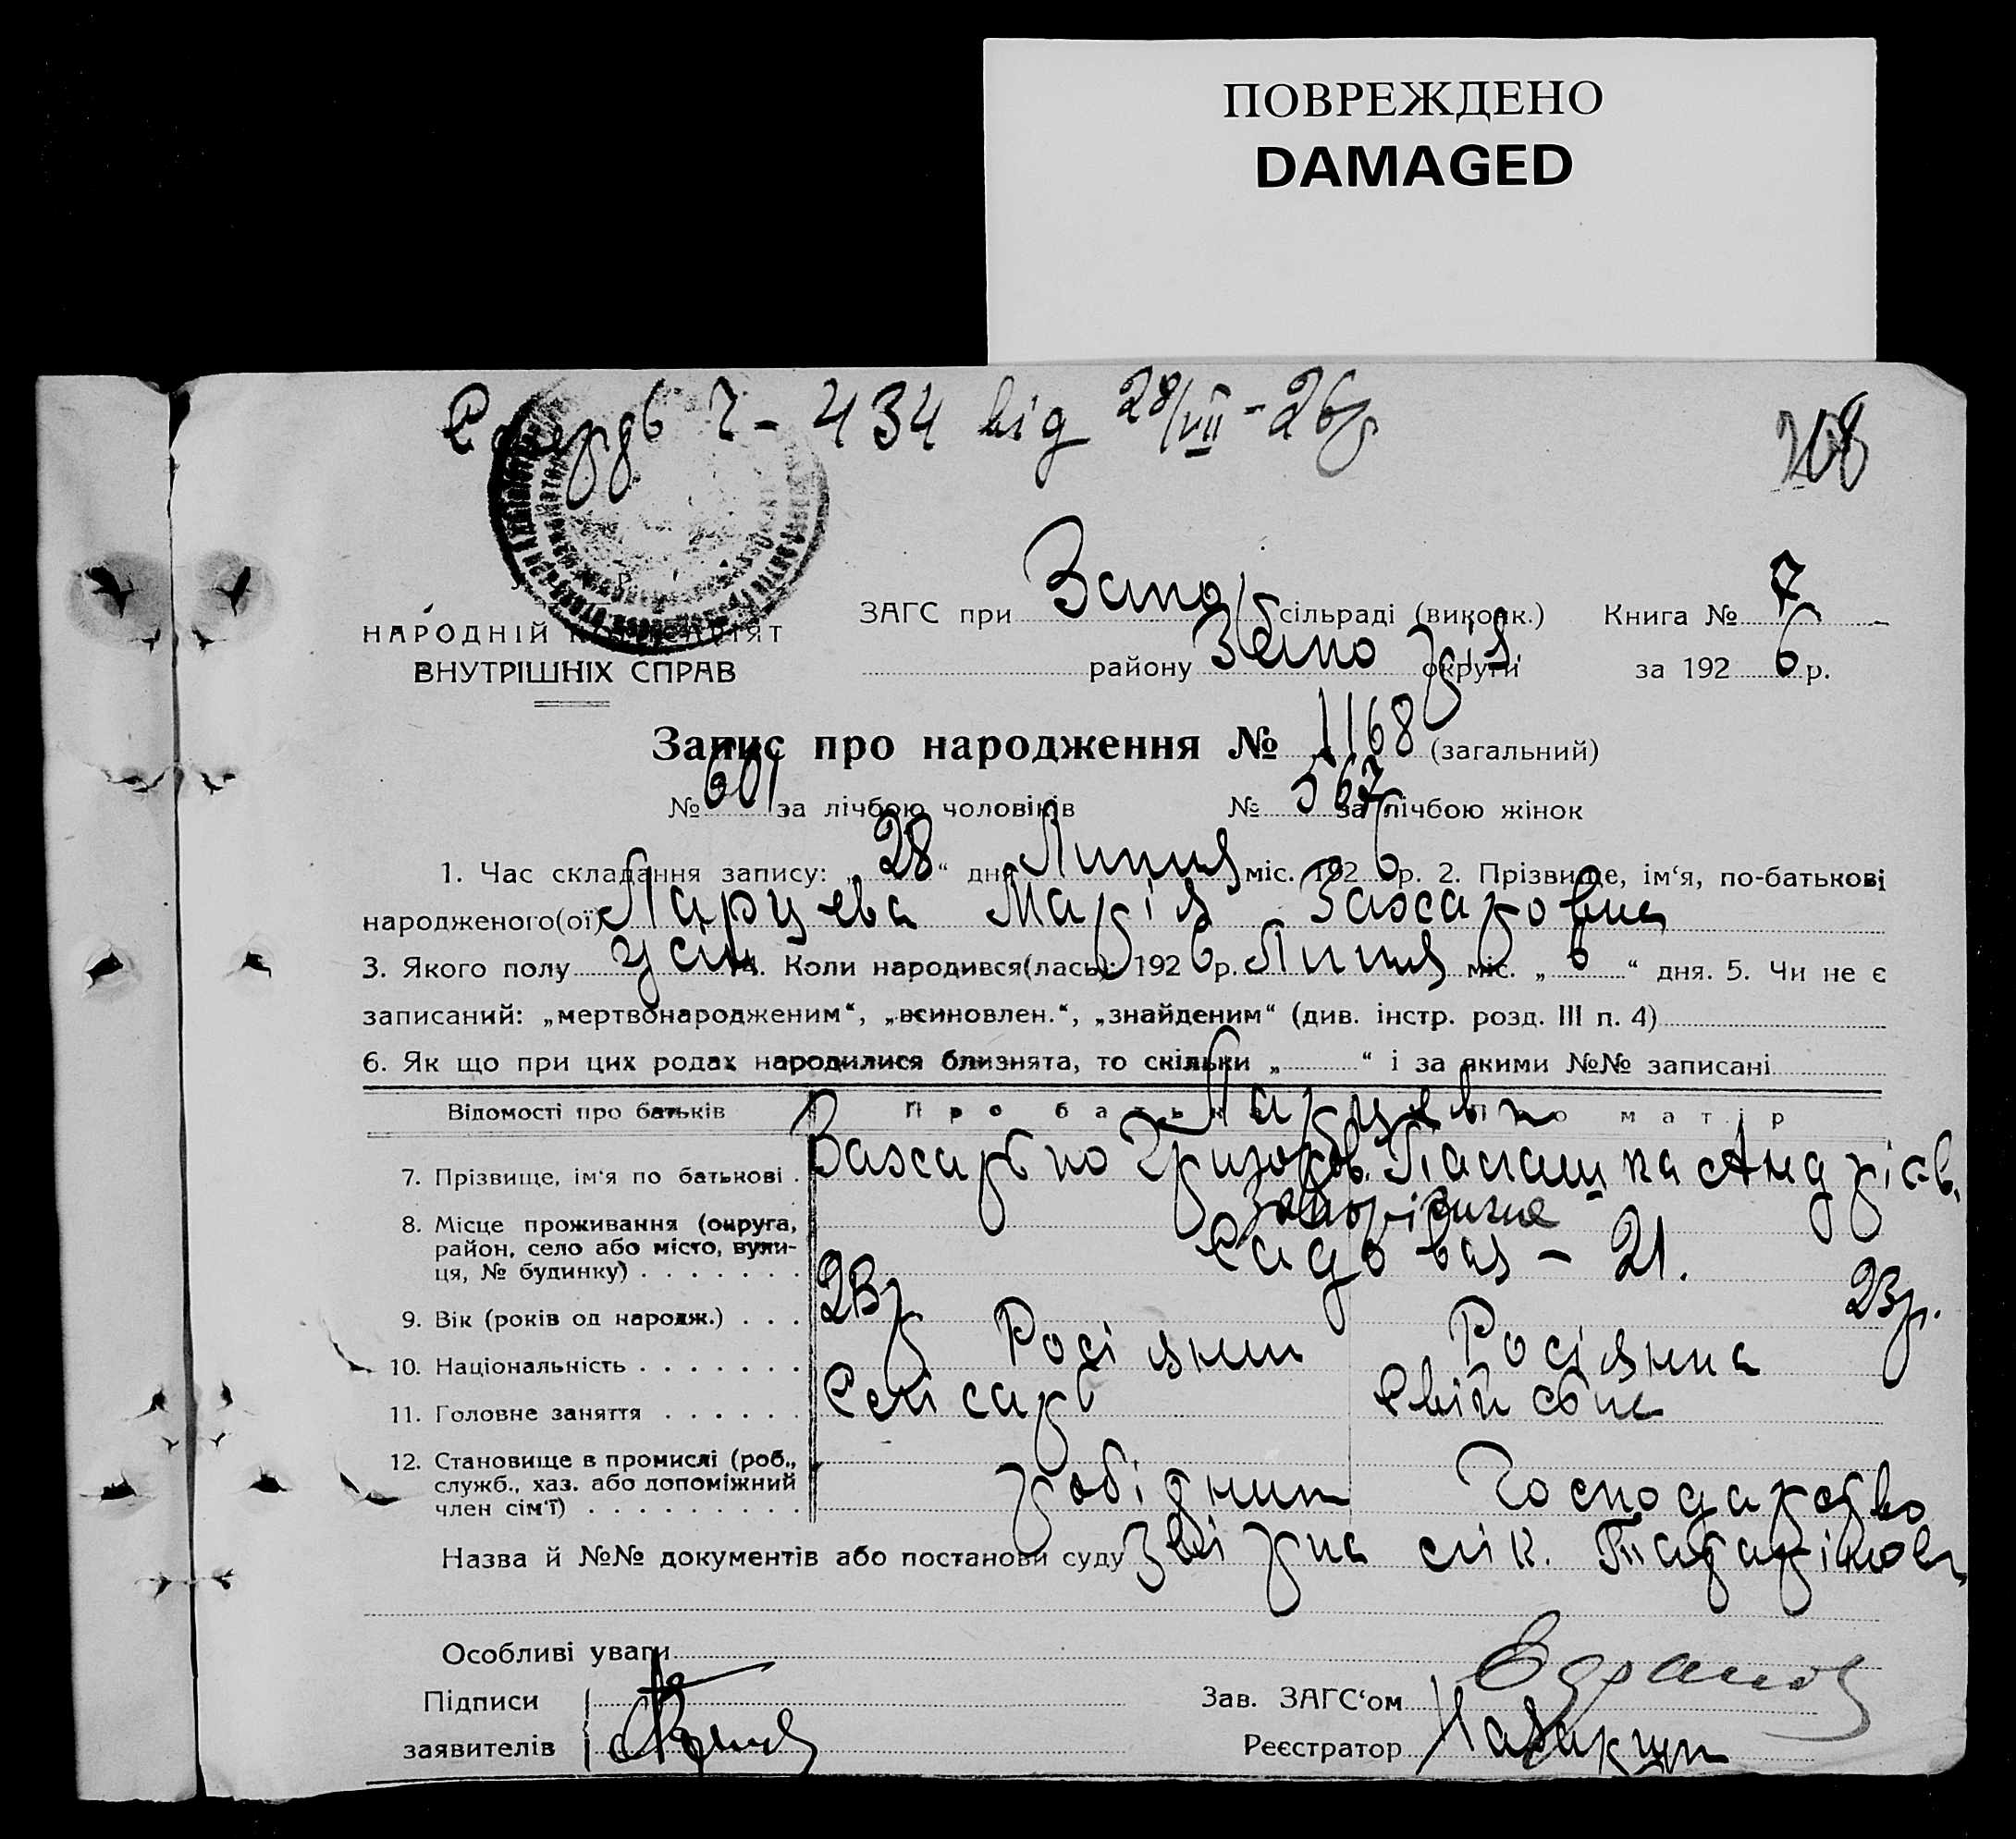 ПОВРЕЖДЕНО
DAMAGED
434 від 28/VII-26р
НАРОДНІЙ
ВНУТРІШНІХ СПРАВ
ЗАГС при Запор сільраді (виконк.) Книга № 7
району Запоріз. округи за 1926 р.
Запис про народження № 1168 (загальний)
№ 601 за лічбою чоловіків № 567 за лічбою жінок
1. Час складання запису: „28“ дня Липня міс. 1926 р. 2. Прізвище, ім‘я, по-батькові
народженого(ої) Ларцева Марія Захаровна
3. Якого полу жін. 4. Коли народився(лась): 1926 р. Липня міс. „6“ дня. 5. Чи не є
записаний: „мертвонародженим“, „всиновлен.“, „знайденим“ (див. інстр. розд. III п. 4)
6. Як що при цих родах народилися близнята, то скільки „ “ і за якими №№ записані
Відомості про батьків Про батька Про матір
Ларцеви
7. Прізвище, ім‘я по батькові . Захарко Григоров. Палашка Андріев.
8. Місце проживання (округа, район, село або місто, вулиця, № будинку) . . . . . . . Запоріжжє
Садовая - 21.
9. Вік (років од народж.) . . . 23р 23р.
10. Національність . . . . . . . Росіянин Росіянка
11. Головне заняття . . . . . . Слісарь Свійське
12. Становище в промислі (роб., служб., хаз. або допоміжний член сім‘ї) . . . . . . . . . робідник Господарство
Назва й №№ документів або постанови суду Звірка лік.
Особливі уваги
Підписи
заявителів
Зав. ЗАГС‘ом
Реєстратор